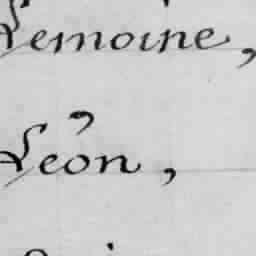 Lemoine,
Léon,